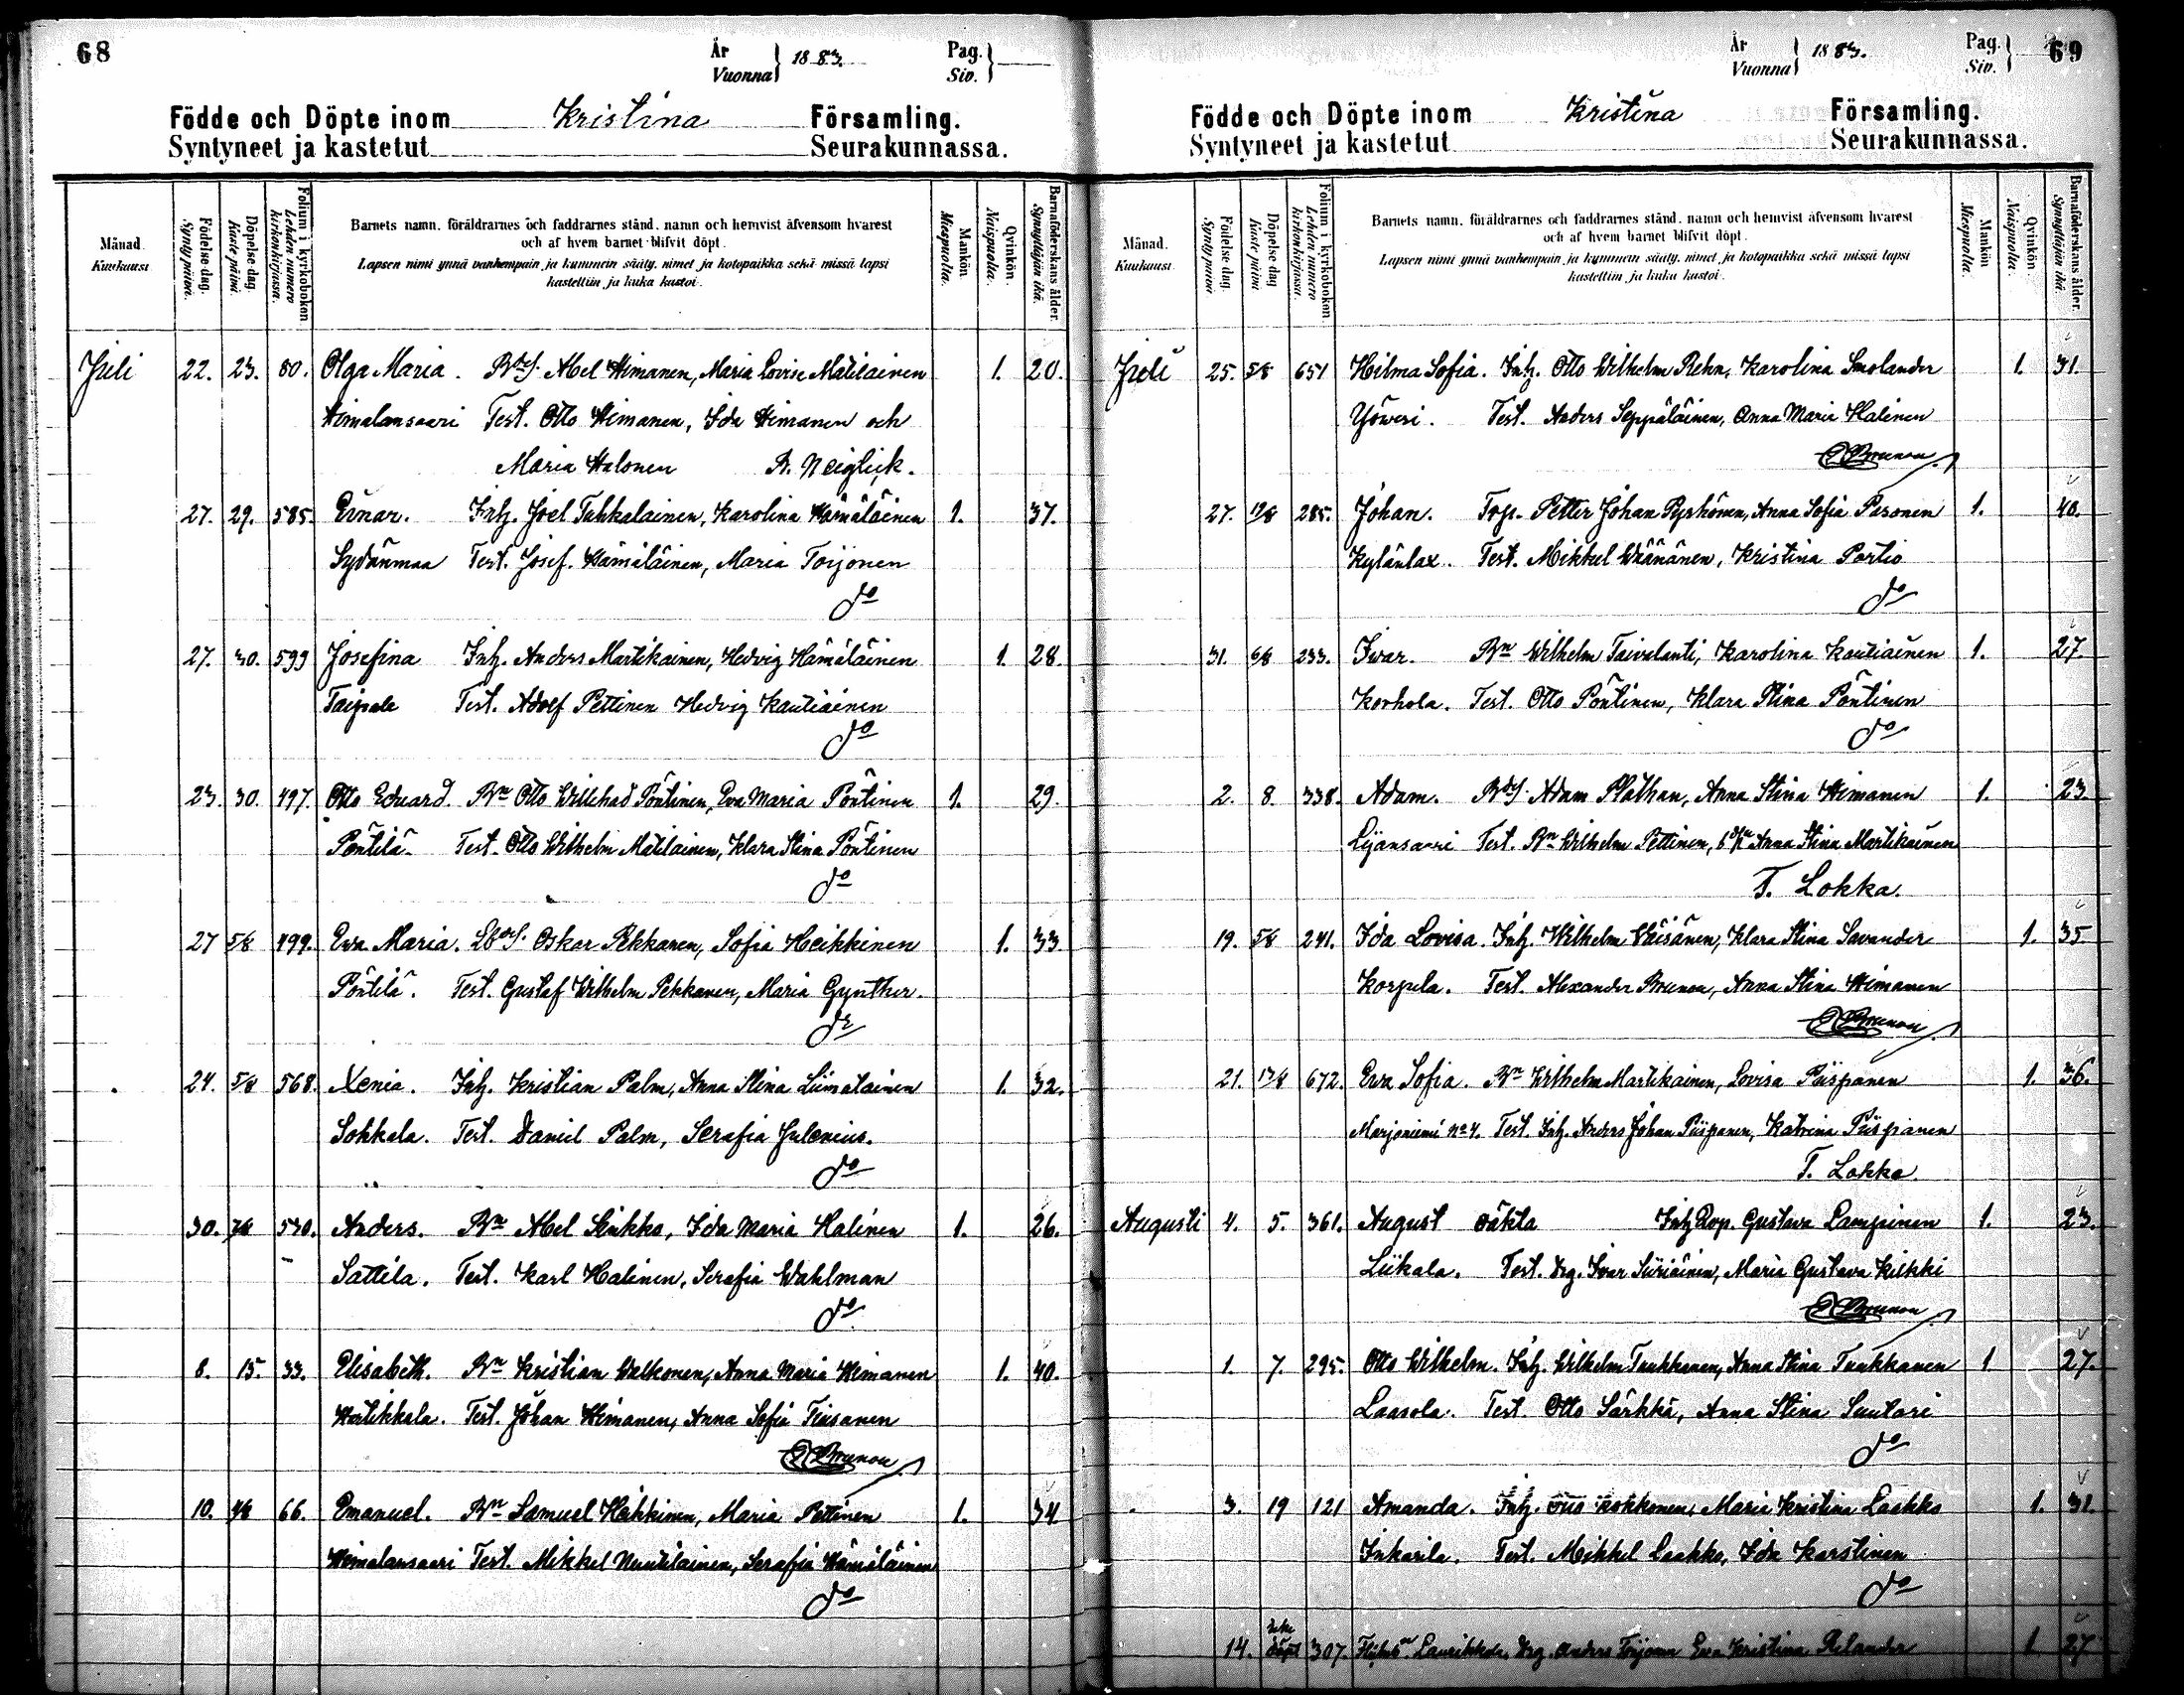 68
År
Vuonna } 1883.
Pag.
Siv. }
Födde och Döpte inom Kristina Församling.
Syntyneet ja kastetut Seurakunnassa.
Månad.
Kuukausi
Födelse dag.
Synty päivä.
Döpelse dag.
Kaste päivä.
Folium i kyrkoboken
Lehden numero kirkonkirjassa.
Barnets namn, föräldrarnes och faddrarnes stånd, namn och hemvist äfvensom hvarest
och af hvem barnet blifvit döpt.
Lapsen nimi ynnä vanhempain ja kummein sääty, nimet ja kotopaikka sekä missä lapsi
kastettiin ja kuka kastoi.
Mankön.
Miespuolta.
Qvinkön.
Naispuolta.
Barnaföderskans ålder.
Synnyttäjän ikä.
Juli 22. 23. 80. Olga Maria. BdeS. Abel Himanen, Maria Lovisa Matilainen 1. 20.
Himalansaari Test. Otto Himanen, Ida Himanen och
Maria Halonen R. Neiglick.
27. 29. 585. Einar. Inh. Joel Tuhkalainen, Karolina Hämäläinen 1. 37.
Sydänmaa Test. Josef. Hämäläinen, Maria Toijonen
do
27. 30. 599 Josefina Inh. Anders Martikainen, Hedvig Hämäläinen 1. 28.
Taipale Test. Adolf Pettinen Hedvig Kautiainen
do
23. 30. 497. Otto Eduard. Bn Otto Willehad Pöntinen, Eva Maria Pöntinen 1. 29.
Pöntilä. Test. Otto Wilhelm Matilainen, Klara Stina Pöntinen
do
27 5/8 499. Ewa Maria. Oskar Pekkanen, Sofia Heikkinen 1. 33.
Pöntilä. Test. Gustaf Wilhelm Pekkanen, Maria Gynther.
do
24. 5/8 568. Xenia. Inh. Kristian Palm, Anna Stina Liimatainen 1. 32.
Sokkala. Test. Daniel Palm, Serafia Julenius.
do
30. 7/8 530. Anders. Bn Abel Sinkko, Ida Maria Halinen 1. 26.
Sattila. Test. Karl Halinen, Serafia Wahlman
do
8. 15. 33. Elisabeth. Bn Kristian Valkonen, Anna Maria Himanen 1. 40.
Hertikkala. Test. Johan Himanen, Anna Sofia Tiusanen
Brunou
10. 4/8 66. Emanuel. Bn Samuel Heikkinen, Maria Pettinen 1. 34
Himalansaari Test. Mikkel Nuutilainen, Serafia Hämäläinen
do
69
År
Vuonna } 1883.
Pag.
Siv. }
Födde och Döpte inom Kristina Församling.
Syntyneet ja kastetut Seurakunnassa.
Månad.
Kuukausi
Födelse dag.
Synty päivä
Döpelse dag
Kaste päivä
Folium i kyrkoboken
Lehden numero kirkonkirjassa.
Barnets namn, föräldrarnes och faddrarnes stånd, namn och hemvist äfvensom hvarest
och af hvem barnet blifvit döpt.
Lapsen nimi ynnä vanhempain ja kummein sääty, nimet ja kotopaikka sekä missä lapsi
kastettiin ja kuka kastoi.
Mankön
Miespuolta.
Qvinkön.
Naispuolta.
Barnaföderskans ålder.
Synnyttäjän ikä.
Juli 25. 5/8 651 Hilma Sofia. Inh. Otto Wilhelm Rehn, Karolina Smolander 1. 31.
Yöveri. Test. Anders Seppäläinen, Anna Maria Halinen
Brunou
27. 19/8 285. Johan. Torp. Petter Johan Pyrhönen, Anna Sofia Paronen 1. 40.
Kylänlax. Test. Mikkel Wäänänen, Kristina Portio
do
31. 6/8 233. Iwar. Bn Wilhelm Taivalanti, Karolina Kautiainen 1. 27.
Korhola. Test. Otto Pöntinen, Klara Stina Pöntinen
do
2. 8. 338. Adam. BdeS. Adam Pläthan, Anna Stina Himanen 1. 23
Lyänsaari Test. Bn Wilhelm Pettinen, Anna Stina Martikainen
T. Lokka.
19. 5/8 241. Ida Lovisa. Inh. Wilhelm Väisänen, Klara Stina Savander 1. 35
Korpela. Test. Alexander Brunou, Anna Stina Himanen
Brunou
21. 13/8 672. Ewa Sofia. Bn Wilhelm Martikainen, Lovisa Piispanen 1. 36.
Marjoniemi No 4. Test. Inh. Anders Johan Piispanen, Katrina Piispanen
T. Lokka.
Augusti 4. 5. 361. August oäkta Gustava Lampinen 1. 23.
Liikala. Test. Drg. Ivar Siiriäinen, Maria Gustava Kilkki
Brunou
1. 7. 295. Otto Wilhelm. Inh. Wilhelm Tuukkanen, Anna Stina Tuukkanen 1 27.
Laasola. Test. Otto Särkkä, Anna Stina Suutari
do
3. 19 121 Amanda. Inh. Otto Kokkonen, Maria Kristina Laakko 1. 31.
Inkarila. Test. Mikkel Laakko, Ida Karstinen
do
14. Icke döpt 307. Laurikkala, Drg. Anders Toijonen Eva Kristina Relander 1 27